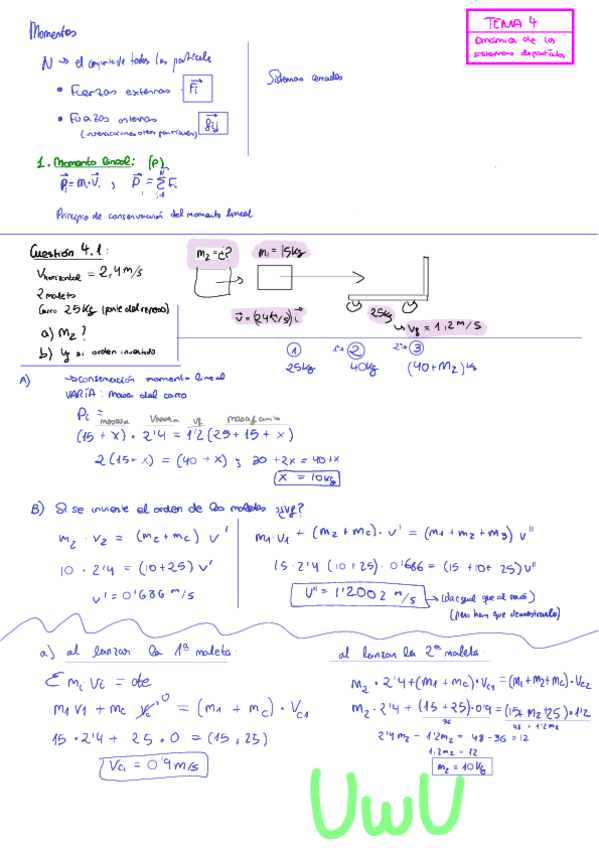 Momentos
TEMA 4
Dinámica de los
sistemas de partículas
N → el conjunto de todas las partículas
• Fuerzas externas Fi
• Fuerzas internas fij
(interacciones otras partículas)
Sistemas cerrados
1. Momento lineal: (P)
Pi = mi·vi ; P = Σ Pi
Principio de conservación del momento lineal
Cuestión 4.1:
Vhorizontal = 2,4 m/s
2 maletas
Carro 25 kg (parte del reposo)
a) m2?
b) vf si orden invertido
m2 = ¿? m1 = 15kg
v = (2'4 m/s) i
25kg
→ vf = 1,2 m/s
1 1º→ 2 2º→ 3
25kg 40kg (40+m2) kg
A) → conservación momento lineal
VARÍA: Masa del carro
Pi =
(15 + x) · 2'4 = 1'2 (25 + 15 + x)
2 (15 + x) = (40 + x) ; 30 + 2x = 40 + x
x = 10kg
B) Si se invierte el orden de las maletas ¿vf?
m2 · v2 = (m2 + mc) v'
10 · 2'4 = (10+25) v'
v' = 0'686 m/s
m1·v1 + (m2 + mc) · v' = (m1 + m2 + m3) v''
15·2'4 (10+25)·0'686 = (15 + 10 + 25) v''
v'' = 1'2002 m/s → (da igual que al caso)
(pero hay que demostrarlo)
a) al lanzar la 1ª maleta:
Σ mi vi = cte
m1 v1 + mc vc 0 = (m1 + mc) · Vc1
15 · 2'4 + 25 · 0 = (15 + 25)
Vc1 = 0'9 m/s
al lanzar la 2ª maleta:
m2 · 2'4 + (m1 + mc) · Vc1 = (m1 + m2 + mc) · Vc2
m2 · 2'4 + (15 + 25) · 0'9 = (15 + m2 + 25) · 1'2
36 48 + 1'2m2
2'4 m2 - 1'2m2 = 48 - 36 = 12
1,2 m2 = 12
m2 = 10 kg
UwU